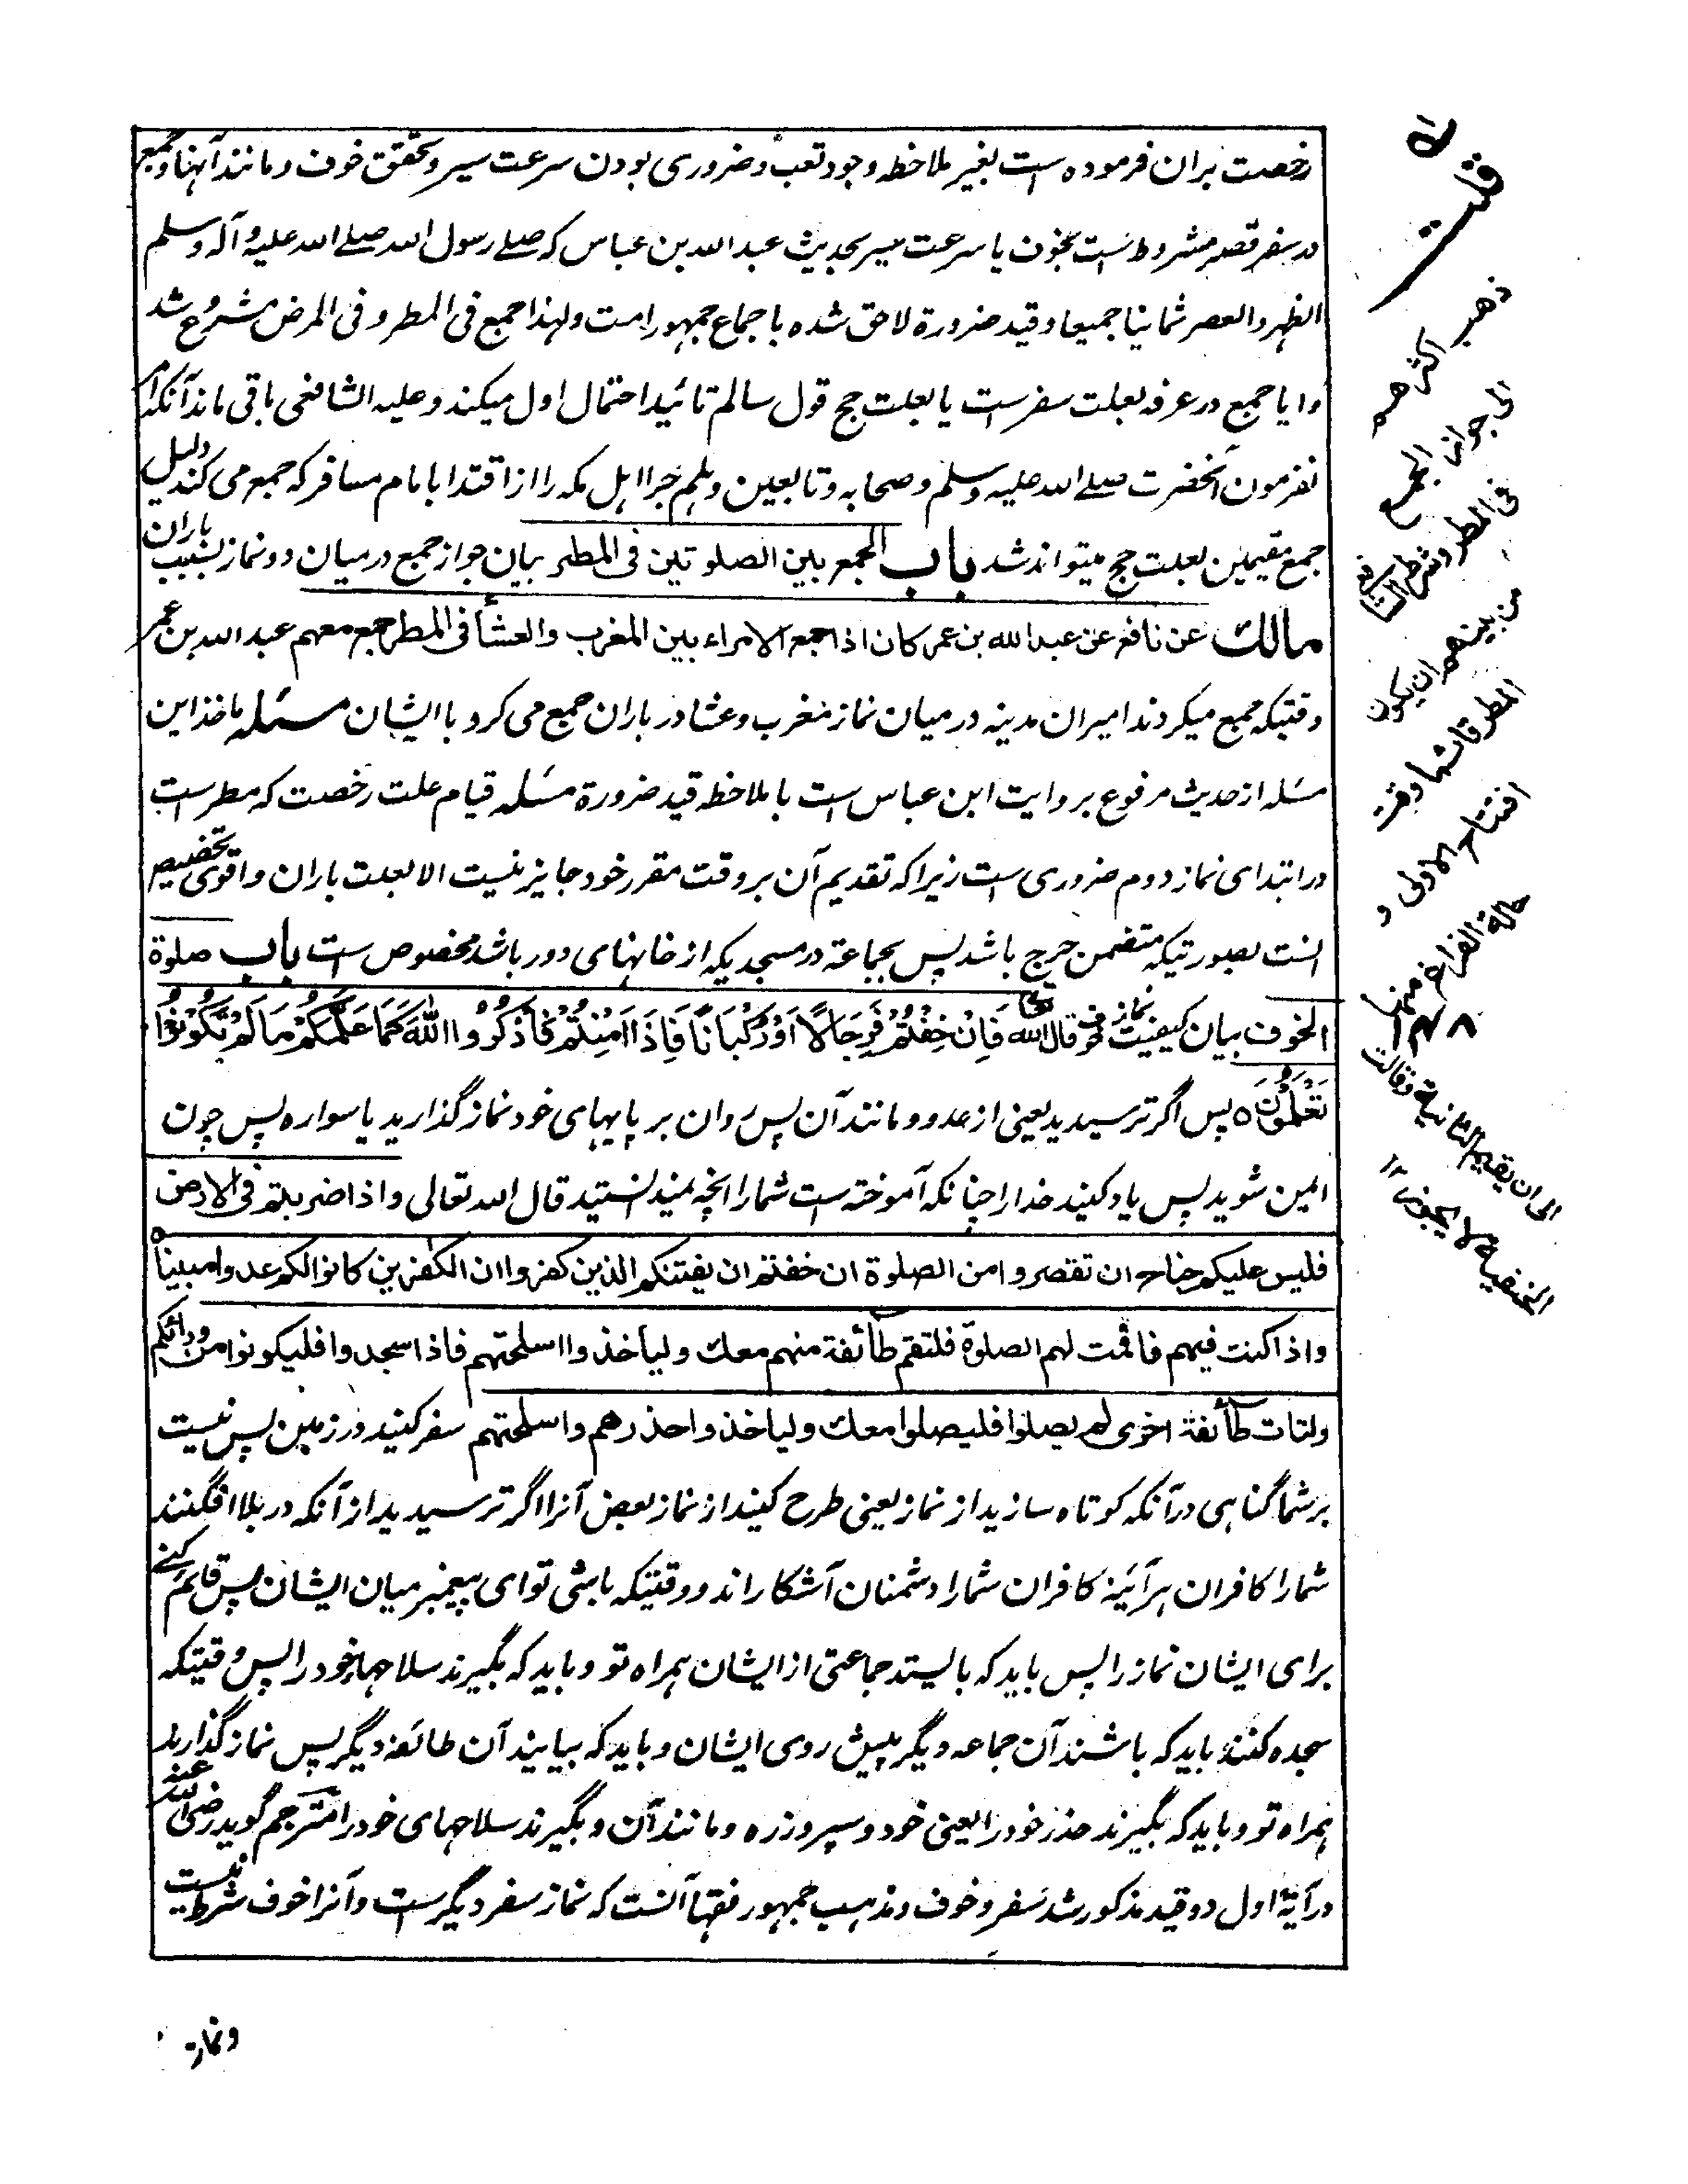 رخصت بران فرموده است بغیر ملاحظه وجود تعب و ضروری بودن سرعت سیر و تحقق خوف و مانند آنها و جمع
در سفر قصر مشروط است بخوف یا سرعت سیر بحدیث عبد الله بن عباس که صلے رسول الله صلے الله علیه و آله وسلم
الظهر والعصر ثمانیا جمیعا و قید ضرورة لاحق شده باجماع جمهور امت ولهذا جمع فی المطر و فی المرض مشروع شد
و ایا جمع در عرفه بعلت سفر است یا بعلت حج قول سالم تائید احتمال اول میکند وعلیه الشافعی باقی ماند آنکه
نفرمودن آنحضرت صلے الله علیه وسلم و صحابه و تابعین وهلم جرا اهل مکه را از اقتدا بامام مسافر که جمع می کند دلیل
جمع مقیمین بعلت حج میتواند شد باب الجمع بین الصلوتین فی المطر بیان جواز جمع در میان دو نماز بسبب باران
مالك عن نافع عن عبد الله بن عمر كان اذا جمع الامراء بين المغرب والعشأ فى المطر جمع معهم عبد الله بن عمر
وقتیکه جمع میکردند امیران مدینه در میان نماز مغرب و عشا در باران جمع می کرد با ایشان مسئله ماخذ این
مسئله از حدیث مرفوع بروایت ابن عباس است با ملاحظه قید ضرورة مسئله قیام علت رخصت که مطر است
در ابتدای نماز دوم ضروری است زیرا که تقدیم آن بر وقت مقرر خود جایز نیست الا بعلت باران و اقوی تخصیص
انست بصورتیکه متضمن حرج باشد پس بجماعة در مسجدیکه از خانهای دور باشد مخصوص است باب صلوة
الخوف بیان کیفیت نماز خوف قال الله تعالی فَاِنْ خِفْتُمْ فَرِجَالًا اَوْ رُكْبَانًا فَاِذَا اَمِنْتُمْ فَاذْكُرُوا اللهَ كَمَا عَلَّمَكُمْ مَا لَمْ تَكُوْنُوْا
تَعْلَمُوْنَ ه پس اگر ترسیدید یعنی از عدو و مانند آن پس روان بر پایهای خود نماز گذارید یا سواره پس چون
ایمن شوید پس یاد کنید خدا را چنانکه آموخته است شما را آنچه نمیدانستید قال الله تعالی واذا ضربتم فی الارض
فليس عليكم جناح ان تقصروا من الصلوة ان خفتم ان يفتنكم الذين كفروا ان الكفرين كانوا لكم عدوا مبينا ه
واذا كنت فيهم فاقمت لهم الصلوة فلتقم طآئفة منهم معك وليأخذوا اسلحتهم فاذا سجدوا فليكونوا من ورائكم
ولتات طآئفة اخرى لم يصلوا فليصلوا معك ولياخذوا حذرهم واسلحتهم سفر کنید در زمین پس نیست
بر شما گناهی در آنکه کوتاه سازید از نماز یعنی طرح کنید از نماز بعض آنرا اگر ترسیدید از آنکه در بلا افگنند
شما را کافران هر آئینه کافران شما را دشمنان آشکارا اند و وقتیکه باشی تو ای پیغمبر میان ایشان پس قایم کنے
برای ایشان نماز را پس باید که بایستد جماعتی از ایشان همراه تو و باید که بگیرند سلاحهای خود را پس وقتیکه
سجده کنند باید که باشند آن جماعه دیگر پیش روی ایشان و باید که بیایند آن طائفه دیگر پس نماز گذارند
همراه تو و باید که بگیرند حذر خود را یعنی خود و سپر و زره و مانند آن و بگیرند سلاحهای خود را مترجم گوید رضی الله عنه
در آیۀ اول دو قید مذکور شد سفر و خوف و مذهب جمهور فقها آنست که نماز سفر دیگر است و آنرا خوف شرط نیست
ونماز
قلت
ذهب اکثرهم
الی جواز الجمع
فی المطر وشرط الشافعی
من بینهم ان یکون
المطر قائما وقت
افتتاح الاولی و
حالة الفراغ منها
الی ان یقیم الثانیة وقالت
الحنفیة لا یجوز ١٢